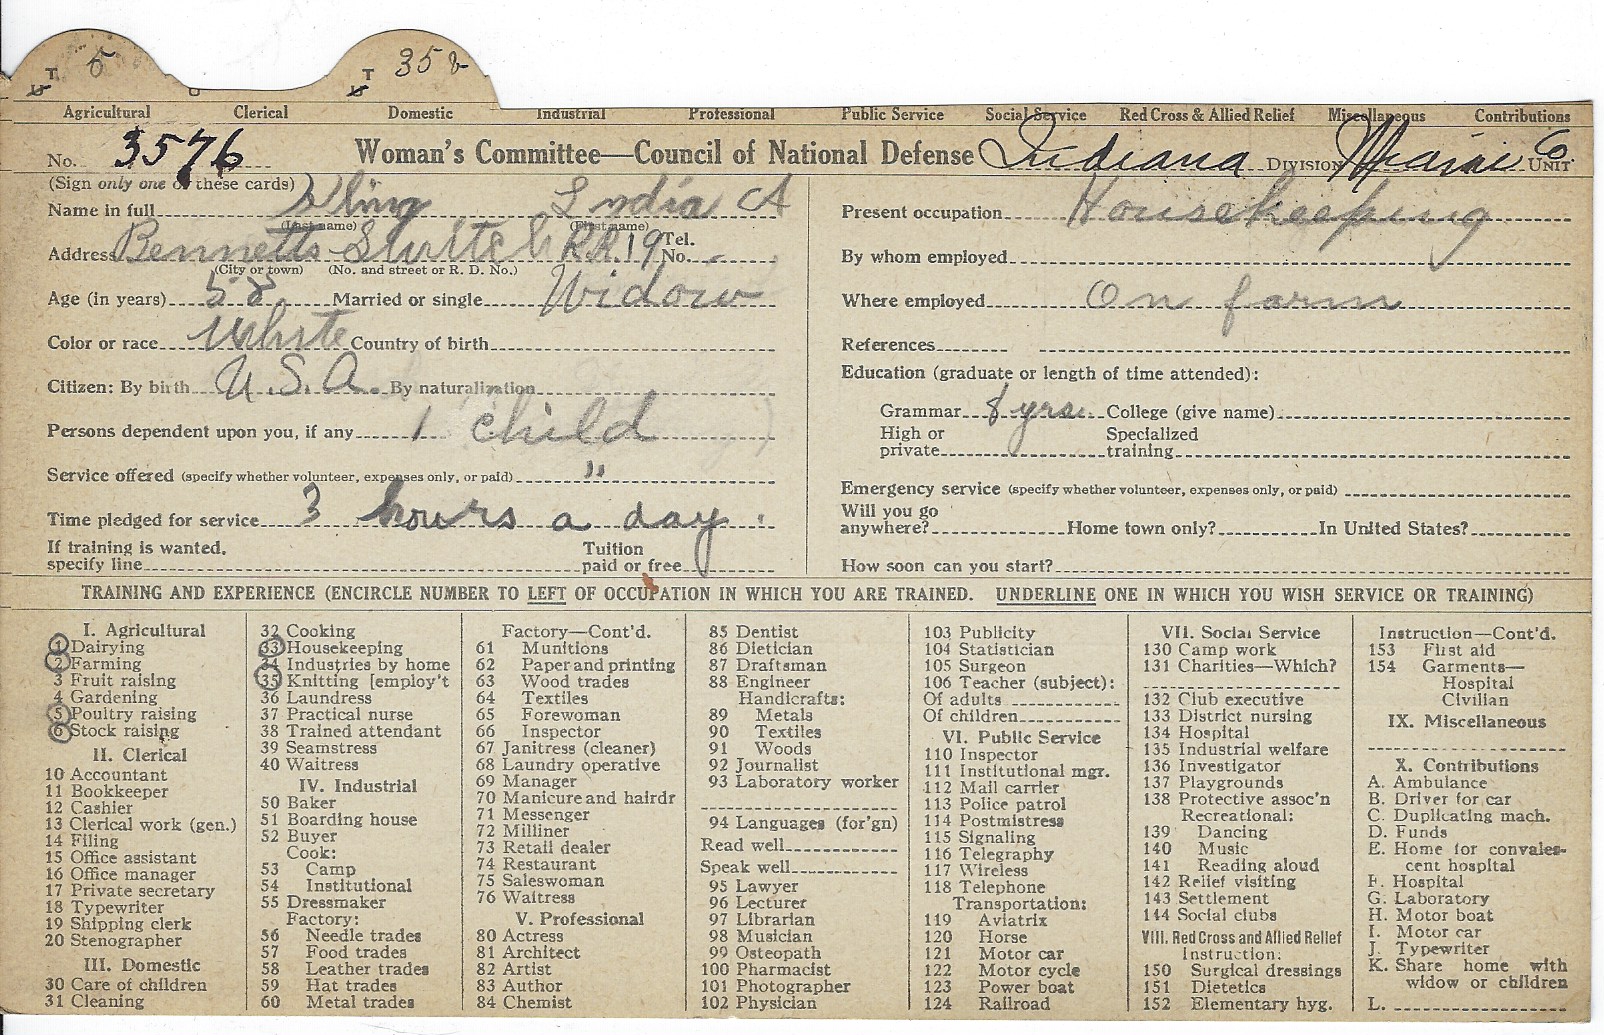 T 5 T 35
Agricultural Clerical Domestic Industrial Professional Public Service Social Service Red Cross & Allied Relief Miscellaneous Contributions
No. 3576 Woman's Committee—Council of National Defense Indiana DIVISION 6 UNIT
(Sign only one of these cards)
Name in full India A
(Last name) (First name)
Address Bennetts R.R. 19 Tel. No. -
(City or town) (No. and street or R. D. No.)
Age (in years) 58 Married or single Widow
Color or race White Country of birth
Citizen: By birth U.S.A. By naturalization
Persons dependent upon you, if any 1 child
Service offered (specify whether volunteer, expenses only, or paid) "
Time pledged for service 3 hours a day.
If training is wanted, specify line Tuition paid or free
Present occupation Housekeeping
By whom employed
Where employed On farm
References
Education (graduate or length of time attended):
Grammar 8 yrs. College (give name)
High or private Specialized training
Emergency service (specify whether volunteer, expenses only, or paid)
Will you go anywhere? Home town only? In United States?
How soon can you start?
TRAINING AND EXPERIENCE (ENCIRCLE NUMBER TO LEFT OF OCCUPATION IN WHICH YOU ARE TRAINED. UNDERLINE ONE IN WHICH YOU WISH SERVICE OR TRAINING)
I. Agricultural
1 Dairying
2 Farming
3 Fruit raising
4 Gardening
5 Poultry raising
6 Stock raising
II. Clerical
10 Accountant
11 Bookkeeper
12 Cashier
13 Clerical work (gen.)
14 Filing
15 Office assistant
16 Office manager
17 Private secretary
18 Typewriter
19 Shipping clerk
20 Stenographer
III. Domestic
30 Care of children
31 Cleaning
32 Cooking
33 Housekeeping
34 Industries by home
35 Knitting [employ't
36 Laundress
37 Practical nurse
38 Trained attendant
39 Seamstress
40 Waitress
IV. Industrial
50 Baker
51 Boarding house
52 Buyer
Cook:
53 Camp
54 Institutional
55 Dressmaker
Factory:
56 Needle trades
57 Food trades
58 Leather trades
59 Hat trades
60 Metal trades
Factory—Cont'd.
61 Munitions
62 Paper and printing
63 Wood trades
64 Textiles
65 Forewoman
66 Inspector
67 Janitress (cleaner)
68 Laundry operative
69 Manager
70 Manicure and hairdr
71 Messenger
72 Milliner
73 Retail dealer
74 Restaurant
75 Saleswoman
76 Waitress
V. Professional
80 Actress
81 Architect
82 Artist
83 Author
84 Chemist
85 Dentist
86 Dietician
87 Draftsman
88 Engineer
Handicrafts:
89 Metals
90 Textiles
91 Woods
92 Journalist
93 Laboratory worker
94 Languages (for'gn)
Read well
Speak well
95 Lawyer
96 Lecturer
97 Librarian
98 Musician
99 Osteopath
100 Pharmacist
101 Photographer
102 Physician
103 Publicity
104 Statistician
105 Surgeon
106 Teacher (subject):
Of adults
Of children
VI. Public Service
110 Inspector
111 Institutional mgr.
112 Mail carrier
113 Police patrol
114 Postmistress
115 Signaling
116 Telegraphy
117 Wireless
118 Telephone
Transportation:
119 Aviatrix
120 Horse
121 Motor car
122 Motor cycle
123 Power boat
124 Railroad
VII. Social Service
130 Camp work
131 Charities—Which?
132 Club executive
133 District nursing
134 Hospital
135 Industrial welfare
136 Investigator
137 Playgrounds
138 Protective assoc'n
Recreational:
139 Dancing
140 Music
141 Reading aloud
142 Relief visiting
143 Settlement
144 Social clubs
VIII. Red Cross and Allied Relief
Instruction:
150 Surgical dressings
151 Dietetics
152 Elementary hyg.
Instruction—Cont'd.
153 First aid
154 Garments—
Hospital
Civilian
IX. Miscellaneous
X. Contributions
A. Ambulance
B. Driver for car
C. Duplicating mach.
D. Funds
E. Home for convales-
cent hospital
F. Hospital
G. Laboratory
H. Motor boat
I. Motor car
J. Typewriter
K. Share home with
widow or children
L.